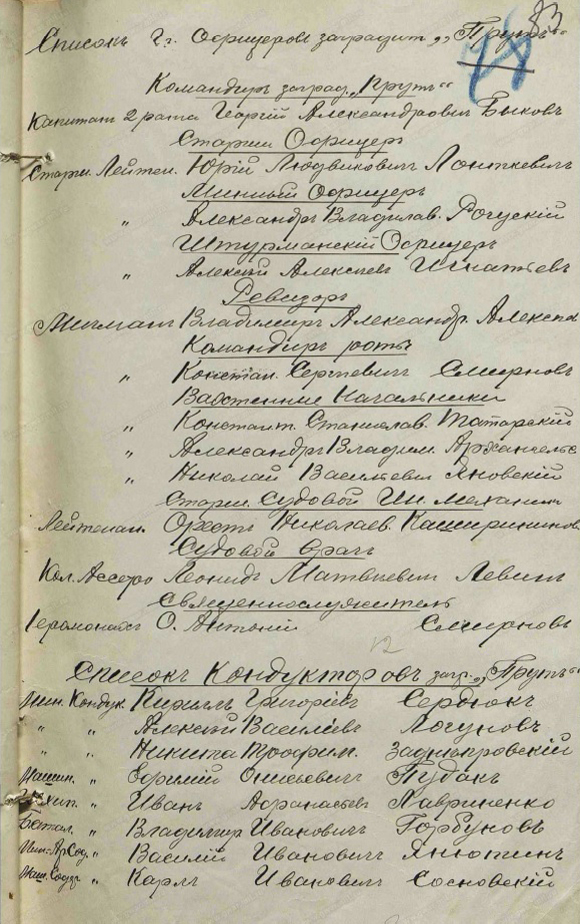 83
Списокъ Г.г. Офицеровъ заградит. „Прутъ“
Командиръ заград. „Прутъ“
Капитанъ 2 ранга Георгій Александровичъ Быковъ
Старшій Офицеръ
Старш. Лейтен. Юрій Людвиковичъ Лонткевичъ
Минный Офицеръ
„ Александръ Владислав. Рогускій
Штурманскій Офицеръ
„ Алексѣй Алексѣев. Игнатьевъ
Ревизоръ
Мичманъ Владимиръ Александр.
Командиръ роты
„ Констан. Сергѣевичъ Смирновъ
Вахтенные Начальники
„ Константин. Станислав. Татарскій
„ Александръ Владим.
„ Николай Васильевичъ Яновскій
Старш. Судовой Ин. Механикъ
Лейтенан. Орестъ Николаев.
Судовой Врачъ
Кол. Ассеро Леонидъ Матвѣевичъ Левинъ
Священнослужитель
Іеромонахъ О. Антоній Смирновъ
12
Списокъ Кондукторовъ загр. „Прутъ“
Мин. Кондук. Кириллъ Григорьев. Сердюкъ
„ „ Алексѣй Васильев. Логуновъ
„ „ Никита Трофим. Заднѣпровскій
Машин. „ Ефимій Онисьевичъ Пудакъ
„ Иванъ Афанасьев. Лавриненко
Батал. „ Владимиръ Ивановичъ Горбуновъ
„ Василій Ивановичъ Янютинъ
„ Карлъ Ивановичъ Сосновскій